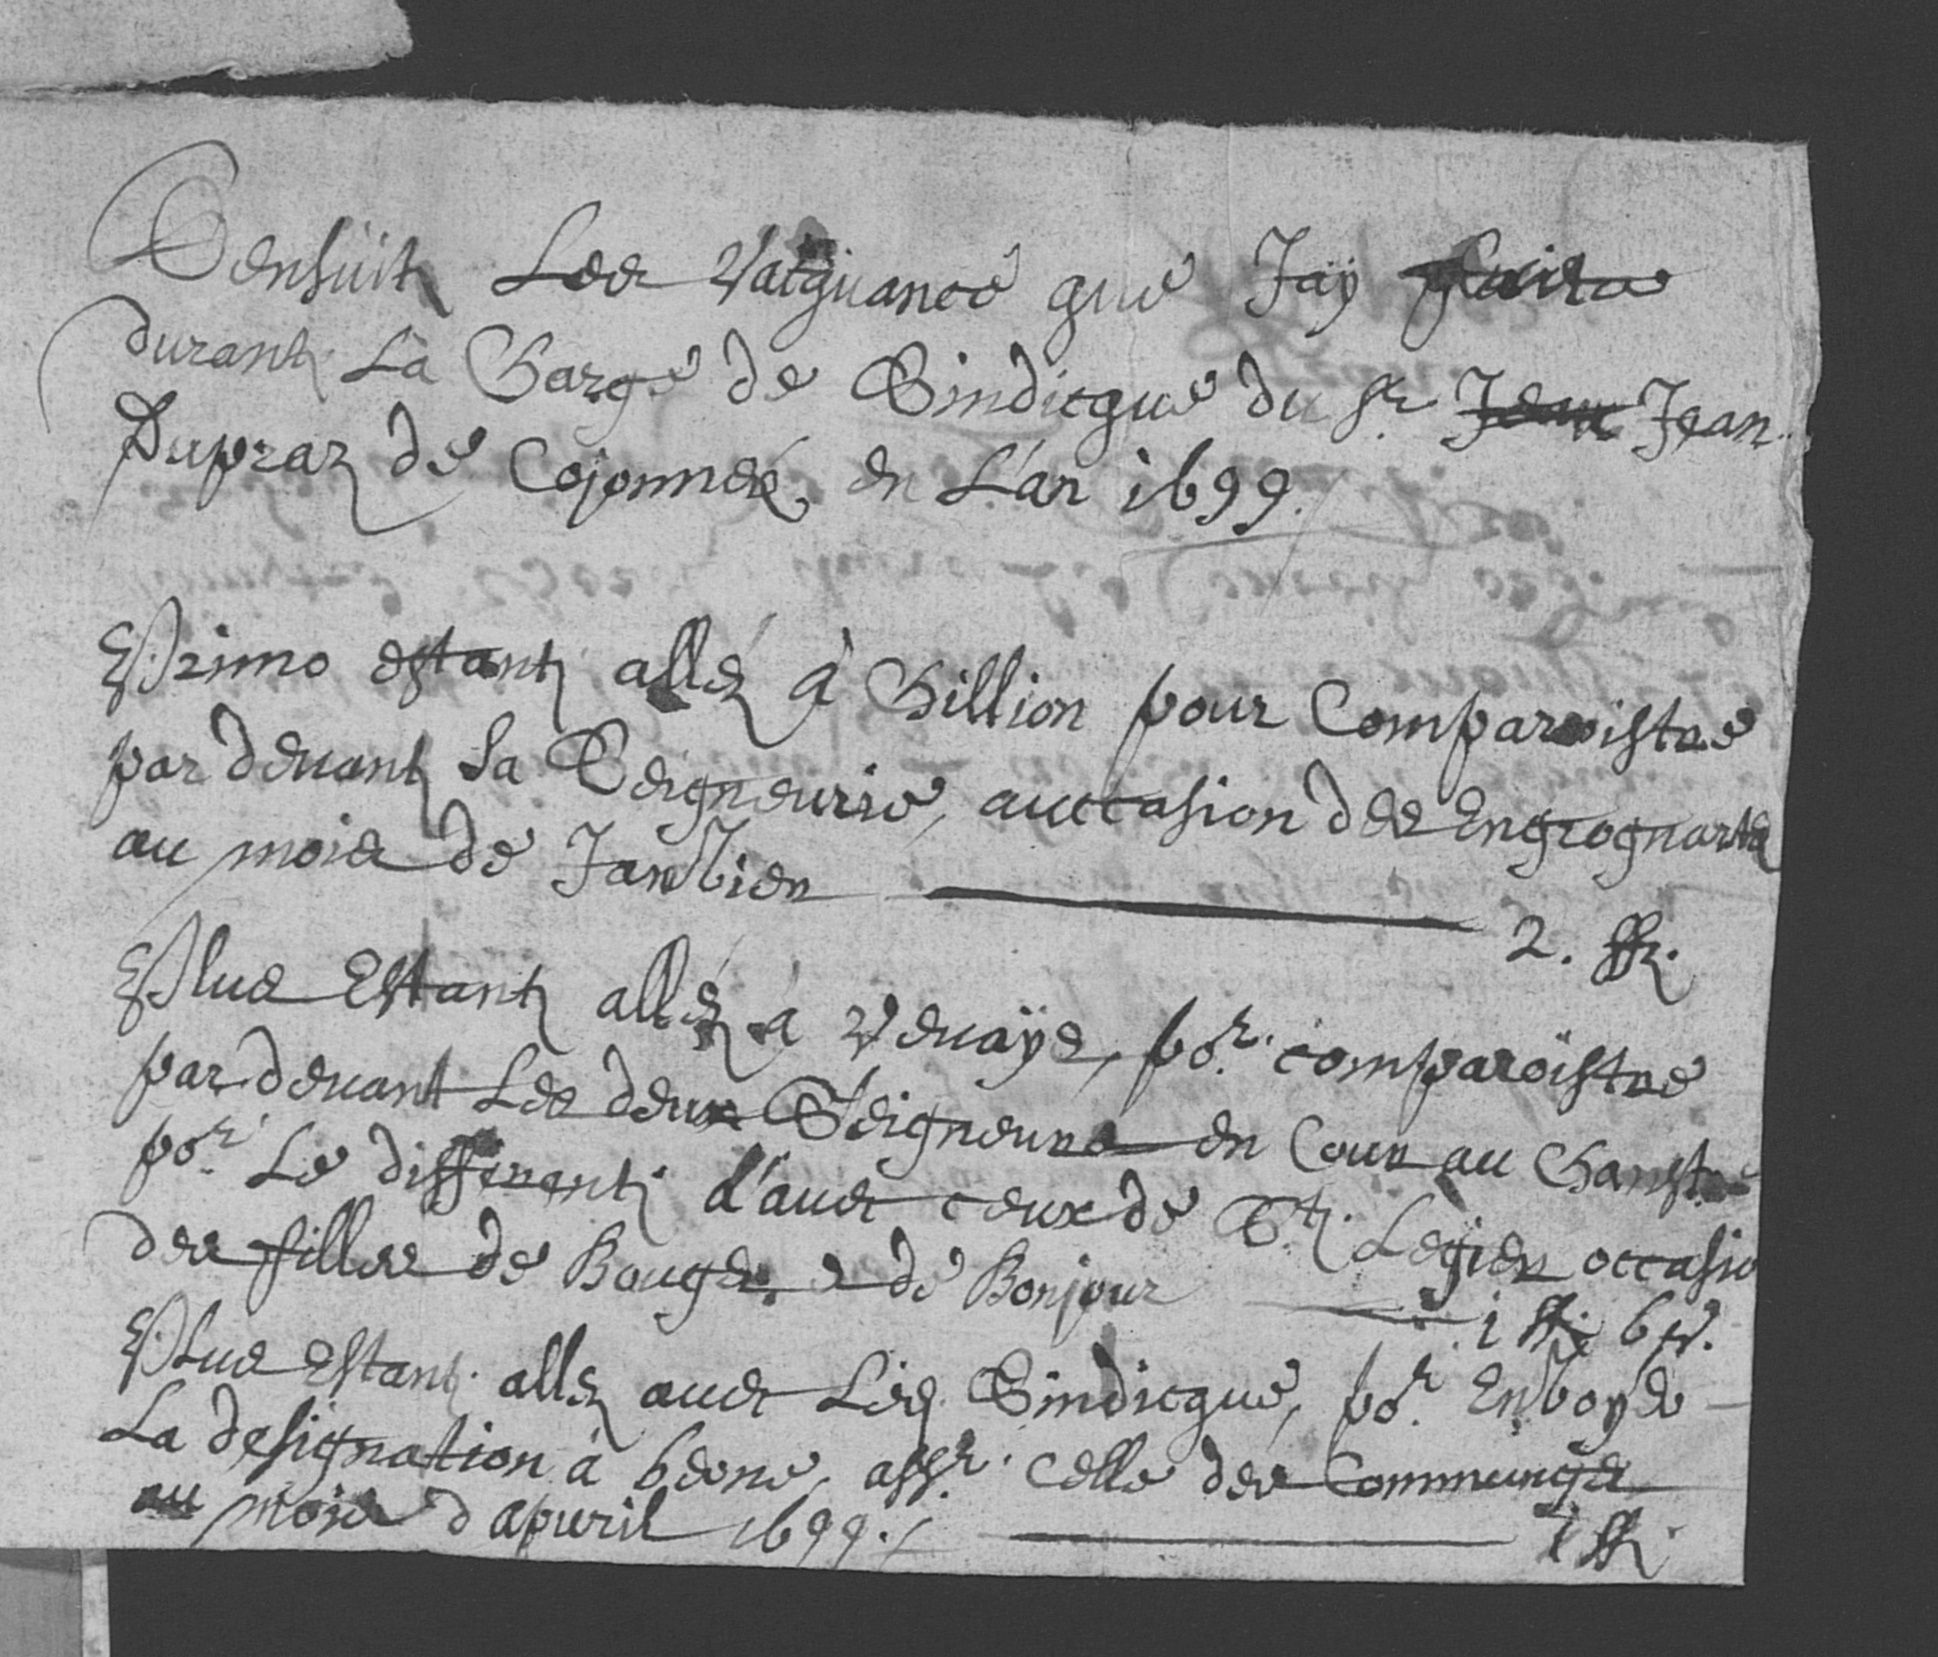 Sensùit Les Vatquance que Jaÿ faites
durant La Charge de Sindicque du sr. Jean Jean
Dupraz de Cojonnex, en L'an 1699.
Primo estant allez à Chillion pour Comparoistre
par devant Sa Seigneurie, auccasion des Engrognarts
au mois de Janvier 2. ff.
Plus Estant allez à Vevaÿe, por. comparoistre
par devant Les deux Seigneurs en Cour au
por. Le differant d'avec ceux de St. Legier occasio
des filles de Bouge. e de Bonjour 1 ff. 6 s.
Plus Estant allez avec Led. Sindicque, por. Envoÿe
La designation à berne, assr. celle des Communes
au mois d apvril 1699. 1 ff.